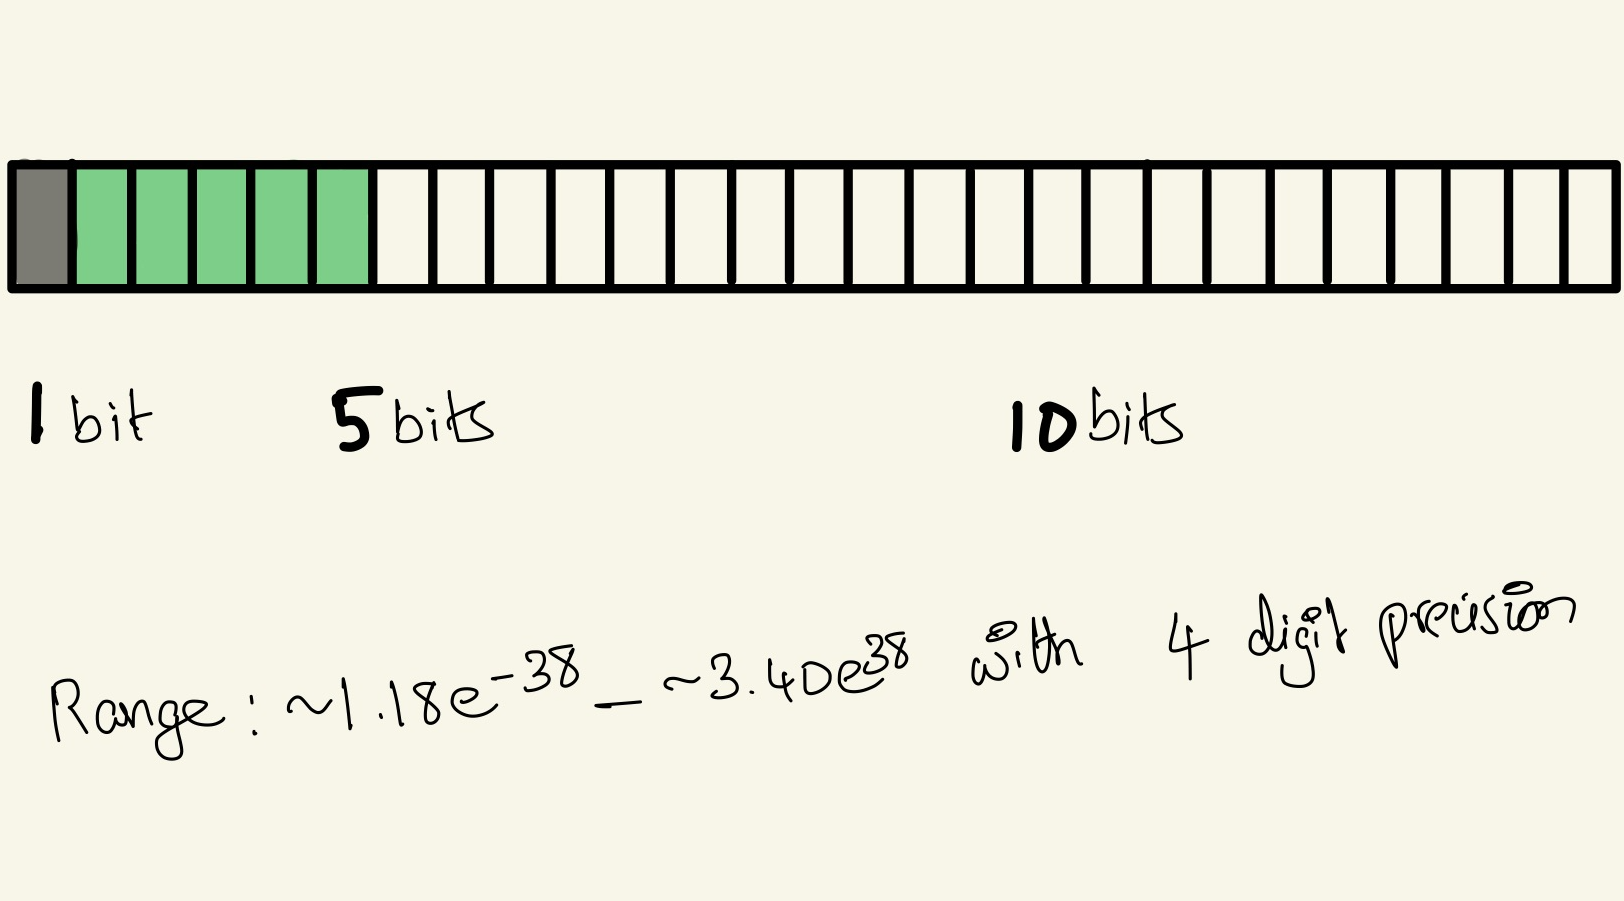 1 bit 5 bits 10 bits
Range: ~1.18e⁻³⁸ – ~3.40e³⁸ with 4 digit precision